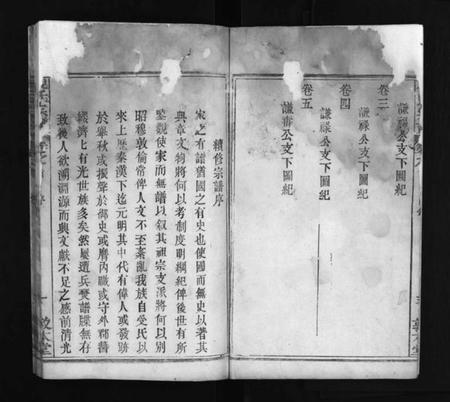 謙祿公支下圖紀
卷三
謙祿公支下圖紀
卷四
謙祿公支下圖紀
卷五
謙壽公支下圖紀
續修宗譜序
家之有譜舊國之有史也使國而無史以著其
典章文物將何以考制度明綱紀俾後世有所
鑒觀使家而無譜以叙其祖宗支派將何以別
昭穆敦倫常俾人文不至紊亂我族自受氏以
來上歷秦漢下迄元明其中代有偉人或發跡
於舉秋或振聲於御史或膺內職或守外
經濟上有光世族多矣然屢遭兵燹譜牒無存
致後人欲溯淵源而興文獻不足之感前清光
一
敦本堂